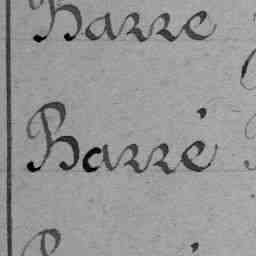 Barre
Barré